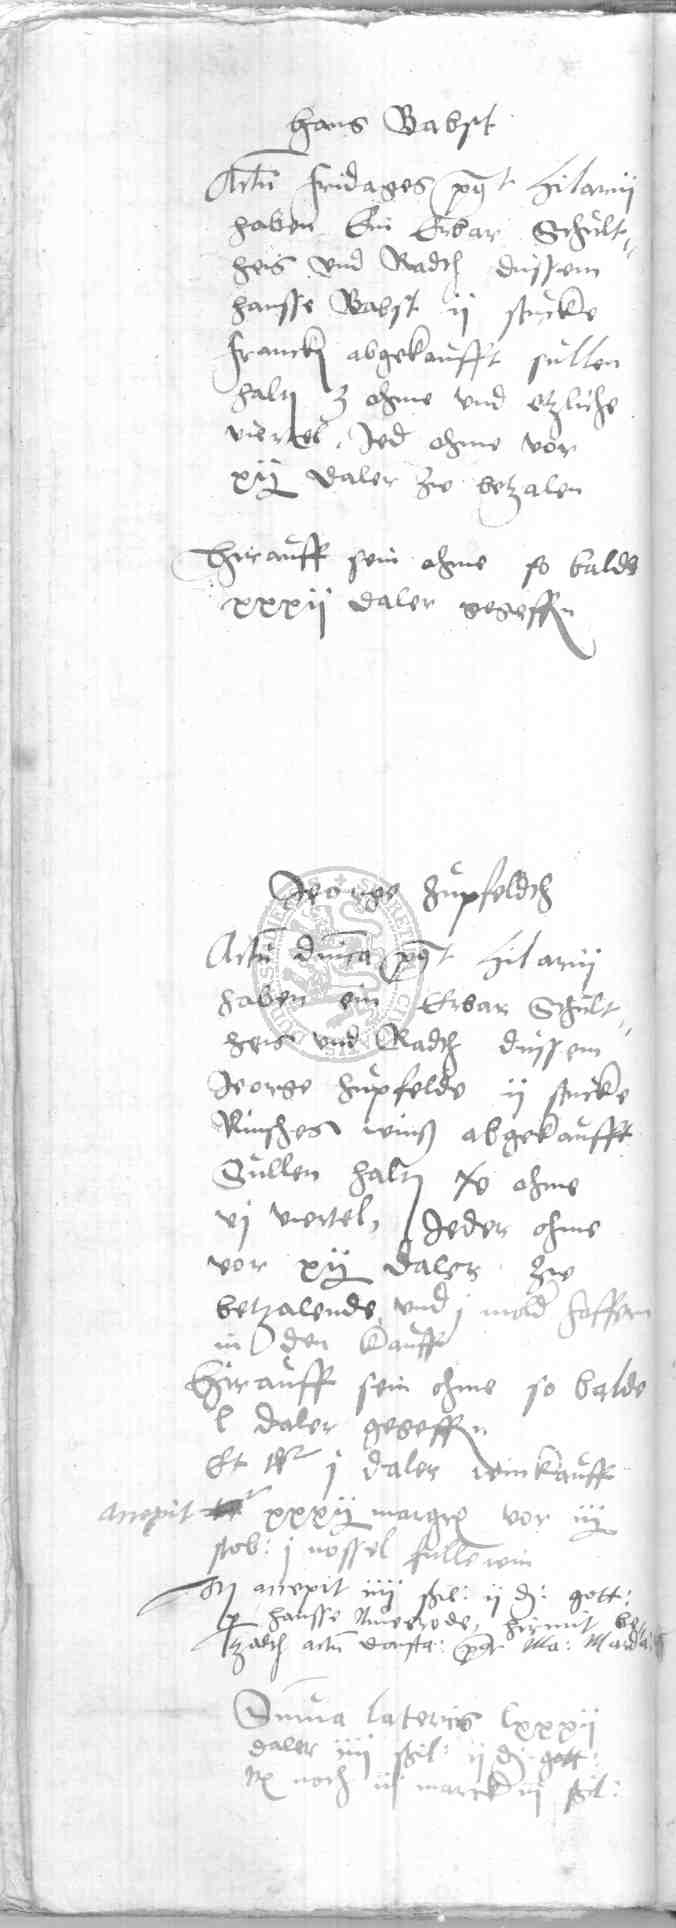 Hans Babst
Actu͂ fridages pɣt Hilarij
haben Ein Erbar Schult-
heis vnd Radth dussem
Hansse Babst ij stucke
franck abgekaufft sullen
halt 3 ohme vnd etzliche
viertel, Jed ohme vor
xij daler zw betzalen
Hirauff sein ohme so balde
xxxij daler gegeffn
Jeorge Hupfeldth
Actu͂ dnica pɣt Hilarij
haben ein Erbar Schult-
heis vnd Radth dussem
Jeorge Hupfelde ij stucke
Rinsches weins abgekaufft
Sullen halt ohme
vj viertel, Jeder ohme
vor xij daler zw
betzalende vnd j mold haffern
in den kauff
Hirauff sein ohme so balde
l daler gegeffn
Et j daler winkauff
xxxij margr vor iij
stob: j nossel fullewin
accepit iiij ß: ij d: gott:
Hansse hirmit be-
zalth actu͂
Suma lateris lxxxij
daler iiij ßil: ij d: gott:
noch iij marck iij ßil: